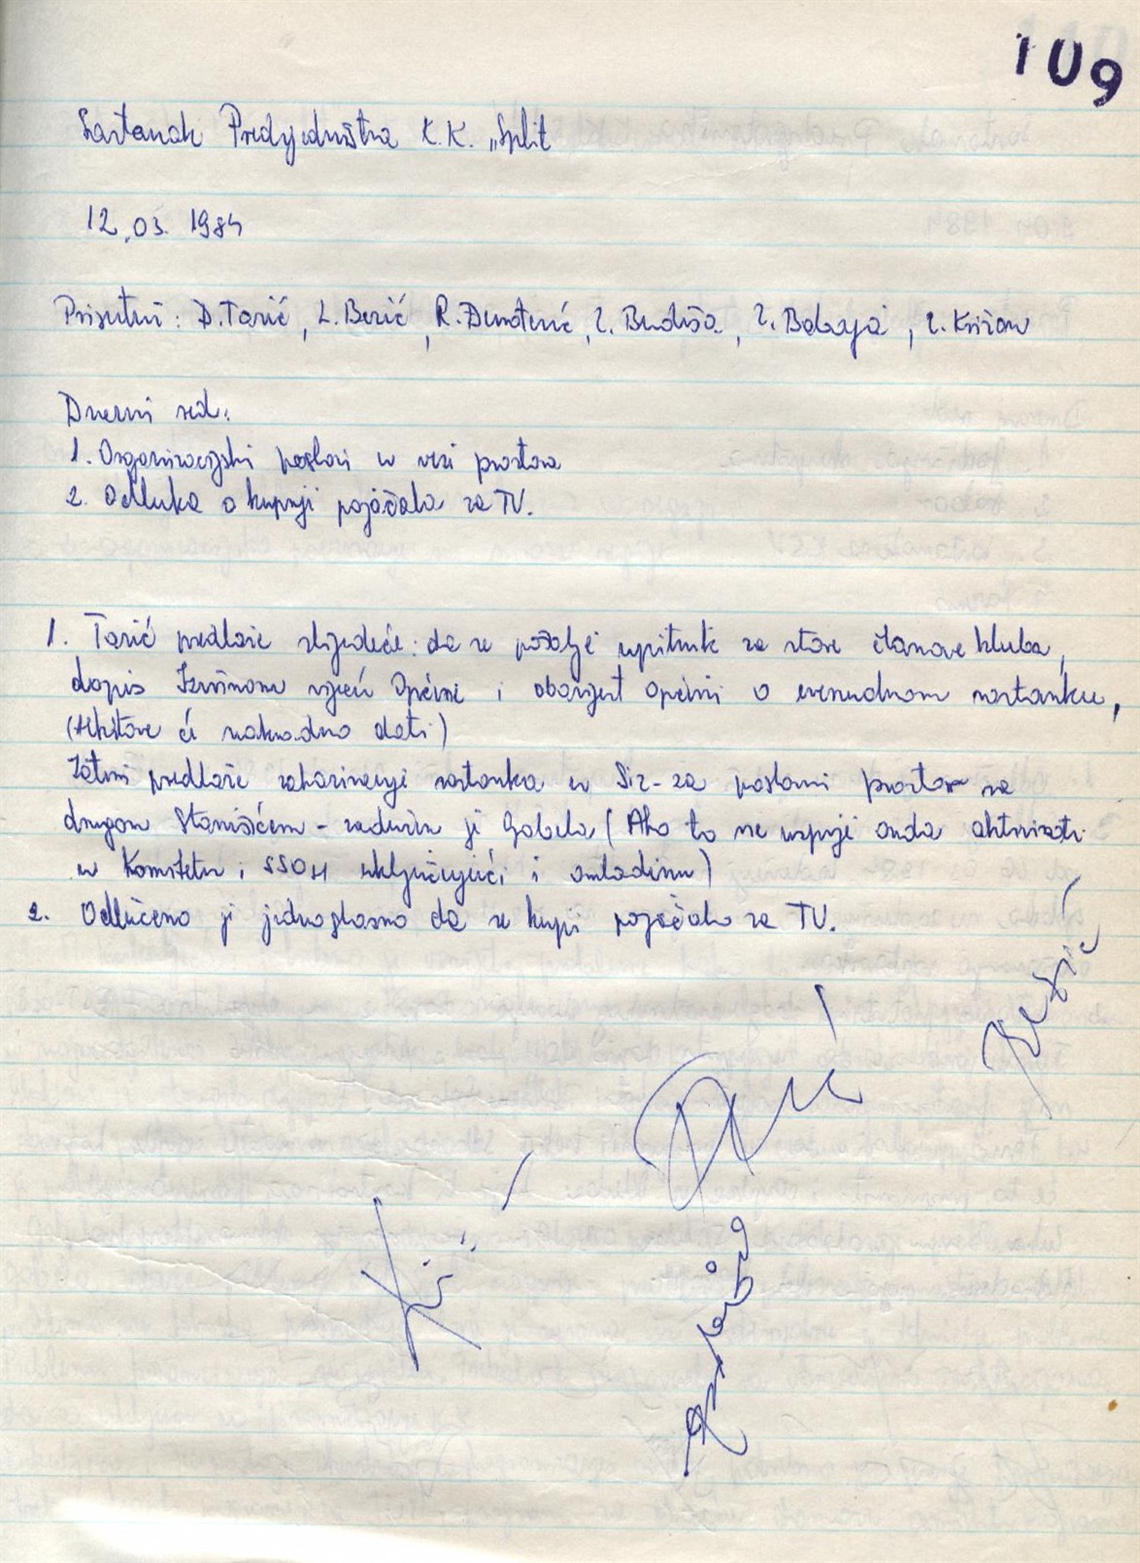 109
Sastanak Predsjedništva K.K. „Split
12.03. 1984
Prisutni: D.Tarić, L.Berić, R.Dumatović, Ž. Budiša, Ž. Babaja, Ž. Križan
Dnevni red:
1. Organizacijski poslovi u vezi prostora
2. Odluka o kupnji pojačala za TV.
1. Tarić predlaže slijedeće: da se pošalje upitnik za stare članove kluba,
dopis Izvršnom vijeću Općine i obavijest općini o evenudnom sastanku,
(tekstove će naknadno dati)
Zatim predlaže zakazivanje sastanka u Siz-za poslovni prostor sa
drugom Stanišićem - zadužen je Gabela (Ako to ne uspije onda aktivirati
u Komitetu i SSOH uključujući i omladinu)
2. Odlučeno je jednoglasno da se kupi pojačalo za TV.